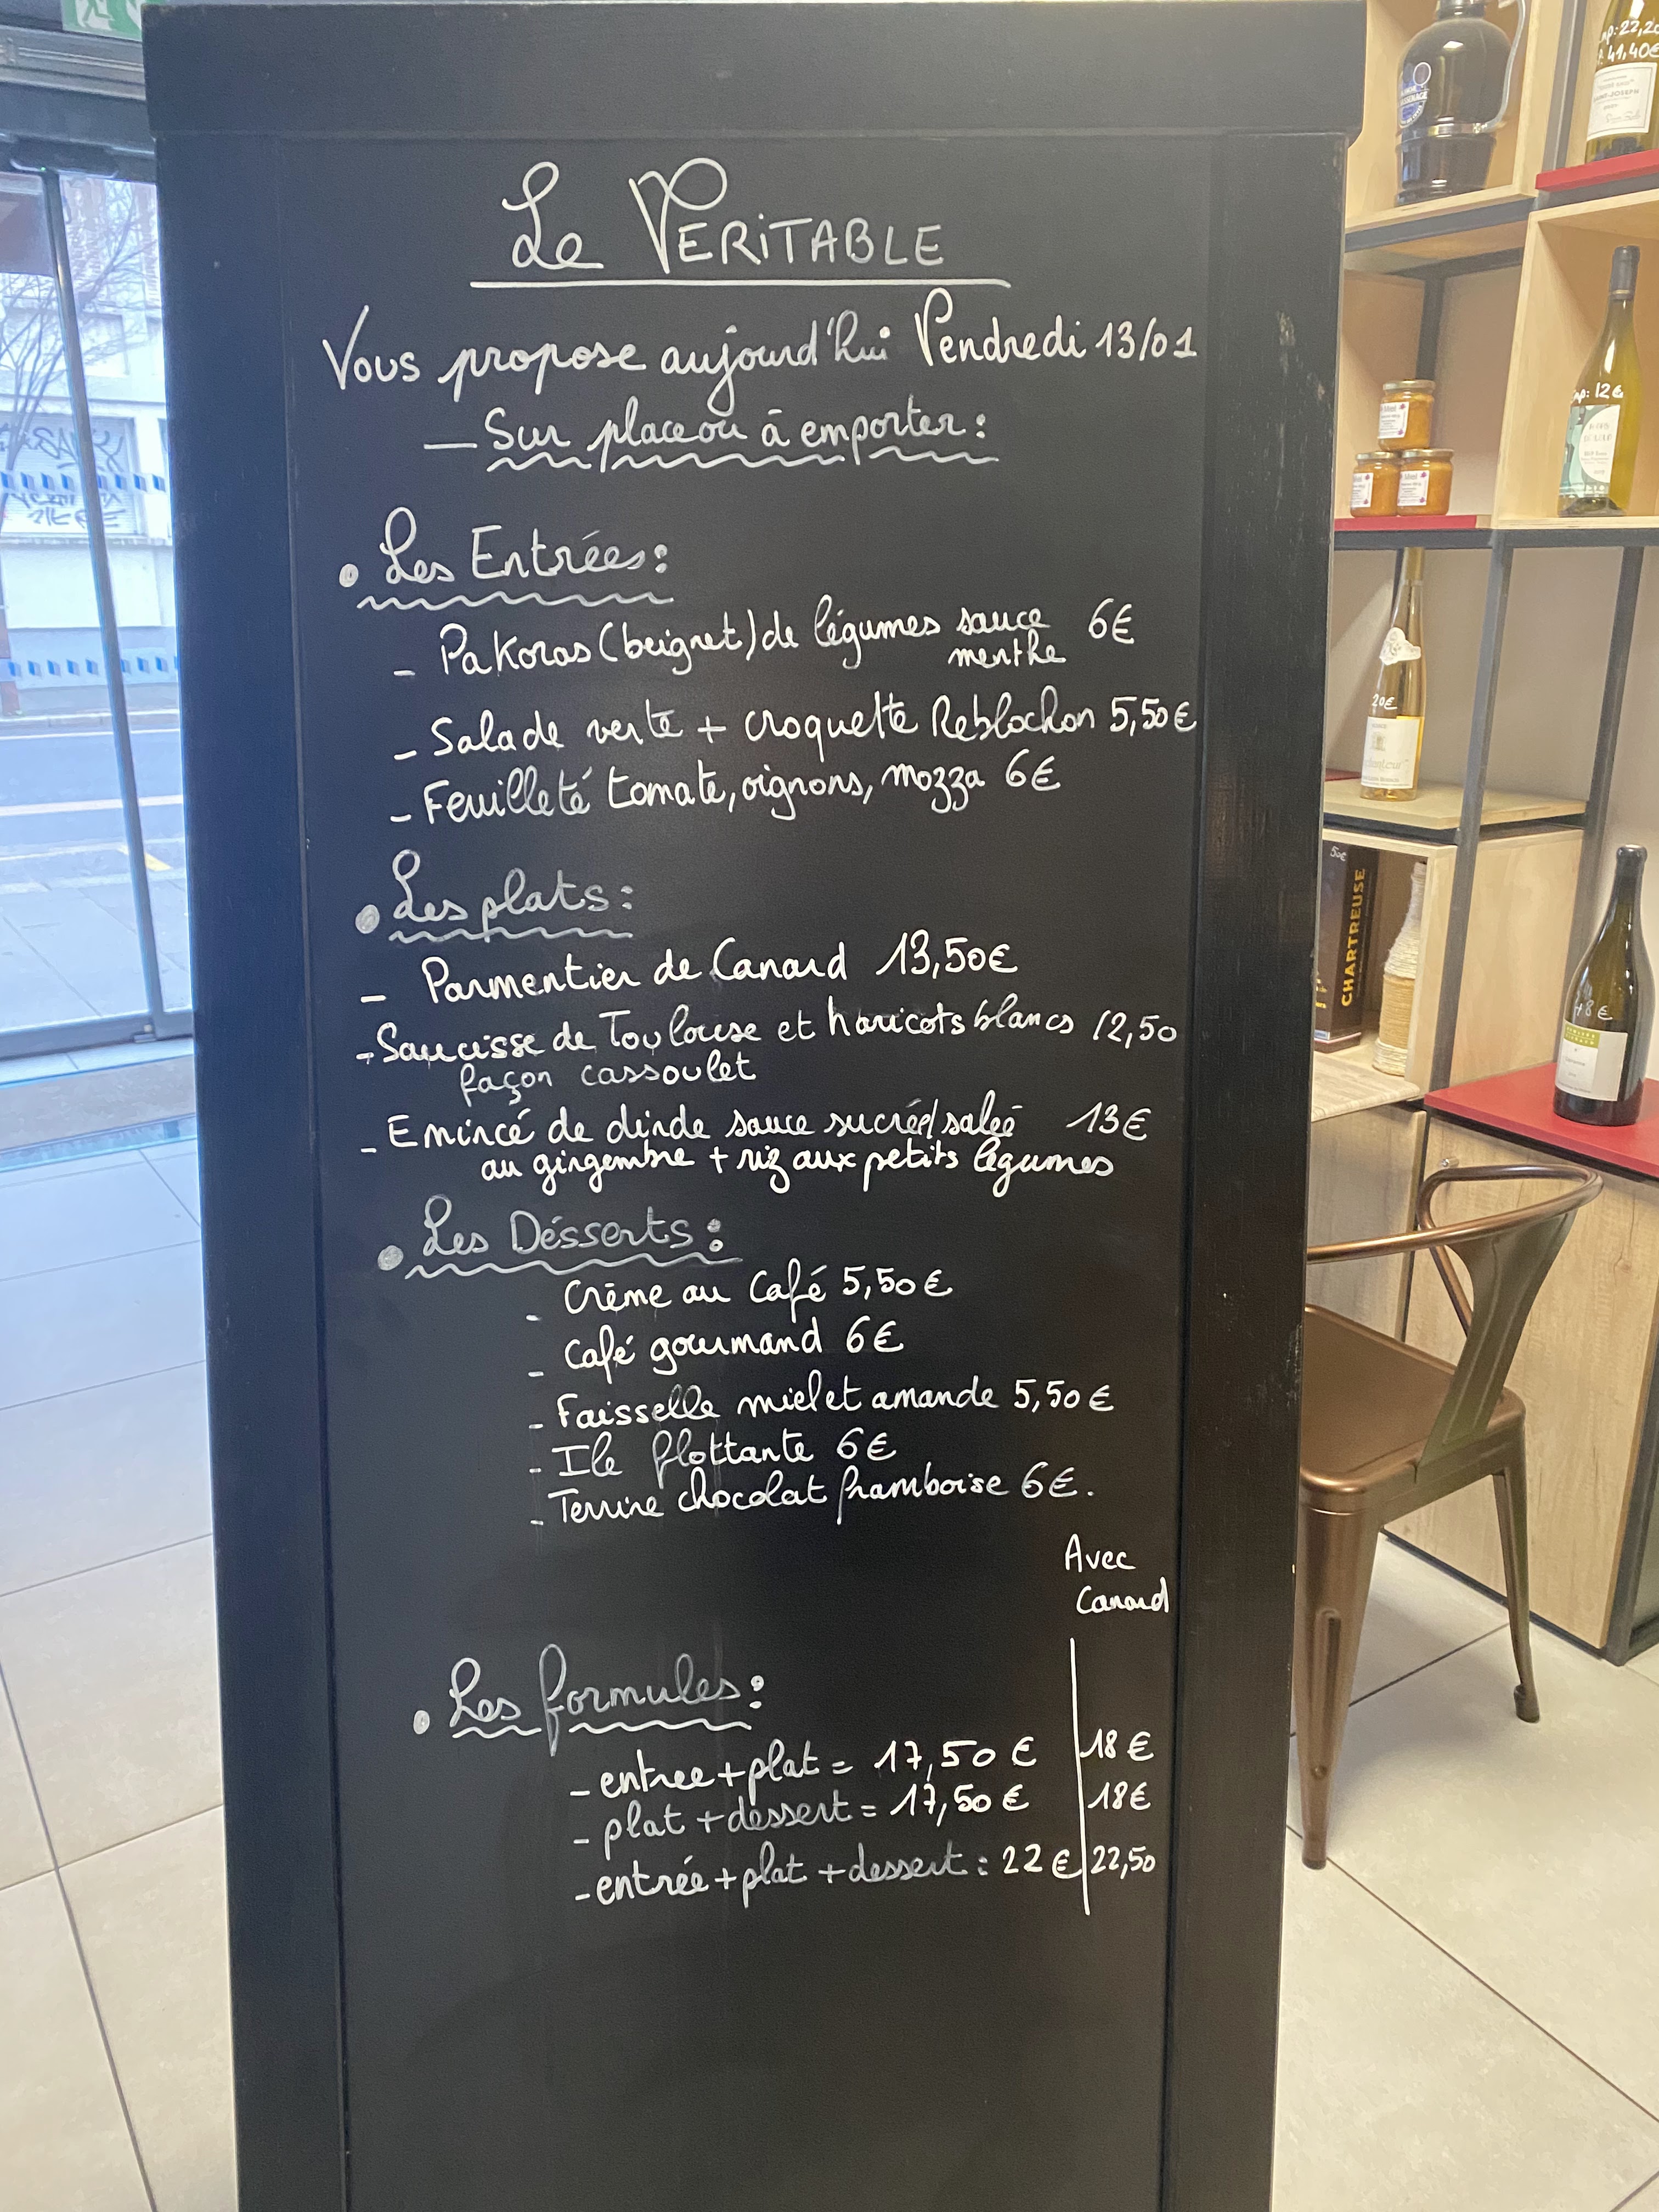 Le VERiTABLE
Vous propose aujourd'hui Vendredi 13/01
— Sur place ou à emporter :
• Les Entrées :
- Pakoras (beignet) de légumes sauce 6€
menthe
- Salade verte + croquette Reblochon 5,50€
- Feuilleté tomate, oignons, mozza 6€
• Les plats :
- Parmentier de Canard 13,50€
- Saucisse de Toulouse et haricots blancs 12,50
façon cassoulet
- Emincé de dinde sauce sucré/salée 13€
au gingembre + riz aux petits légumes
• Les Désserts :
- Crème au Café 5,50€
- Café gourmand 6€
- Faisselle miel et amande 5,50€
- Ile flottante 6€
- Terrine chocolat framboise 6€.
Avec
Canard
• Les formules :
- entree + plat = 17,50 € 18 €
- plat + dessert = 17,50 € 18€
- entrée + plat + dessert : 22 € 22,50
41,40€
SAINT-JOSEPH
12€
20€
50€
CHARTREUSE
48 €